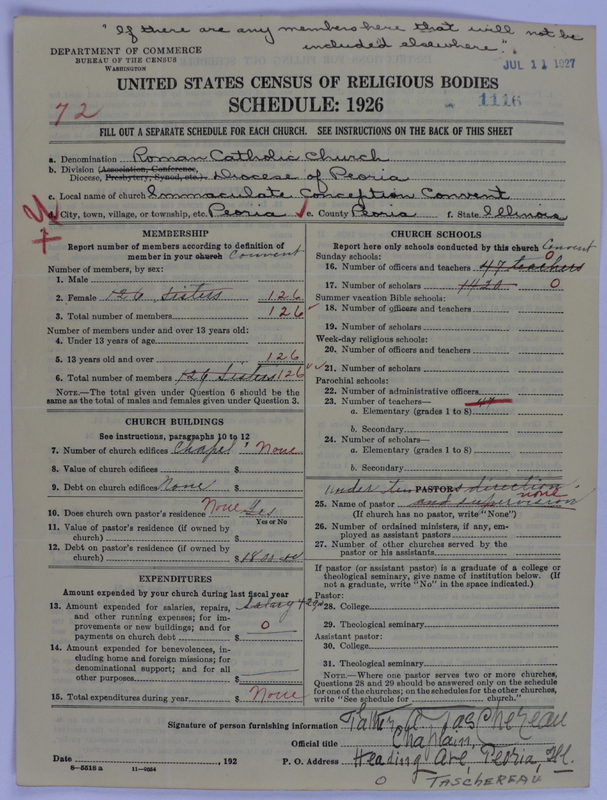 "If there are any members here that will not be
included elsewhere."
DEPARTMENT OF COMMERCE
BUREAU OF THE CENSUS
WASHINGTON
JUL 11 1927
UNITED STATES CENSUS OF RELIGIOUS BODIES
SCHEDULE: 1926
72
1116
FILL OUT A SEPARATE SCHEDULE FOR EACH CHURCH. SEE INSTRUCTIONS ON THE BACK OF THIS SHEET
a. Denomination Roman Catholic Church
b. Division (Association, Conference, Diocese, Presbytery, Synod, etc.) Diocese of Peoria
c. Local name of church Immaculate Conception Convent
d. City, town, village, or township, etc. Peoria e. County Peoria f. State Illinois
MEMBERSHIP
Report number of members according to definition of
member in your church Convent
Number of members, by sex:
1. Male
2. Female 126 Sisters 126
3. Total number of members 126
Number of members under and over 13 years old:
4. Under 13 years of age
5. 13 years old and over 126
6. Total number of members 126 Sisters 126
NOTE.—The total given under Question 6 should be the
same as the total of males and females given under Question 3.
CHURCH BUILDINGS
See instructions, paragraphs 10 to 12
7. Number of church edifices Chapel None
8. Value of church edifices $
9. Debt on church edifices None $
10. Does church own pastor's residence None Yes
Yes or No
11. Value of pastor's residence (if owned by
church) $
12. Debt on pastor's residence (if owned by
church) $
EXPENDITURES
Amount expended by your church during last fiscal year
13. Amount expended for salaries, repairs, Salary
and other running expenses; for im-
provements or new buildings; and for 0
payments on church debt $
14. Amount expended for benevolences, in-
cluding home and foreign missions; for
denominational support; and for all
other purposes $
15. Total expenditures during year $ None
CHURCH SCHOOLS
Report here only schools conducted by this church Convent
Sunday schools: 0
16. Number of officers and teachers 47 teachers
17. Number of scholars 1420 0
Summer vacation Bible schools:
18. Number of officers and teachers
19. Number of scholars
Week-day religious schools:
20. Number of officers and teachers
21. Number of scholars
Parochial schools:
22. Number of administrative officers
23. Number of teachers— 47
a. Elementary (grades 1 to 8)
b. Secondary
24. Number of scholars—
a. Elementary (grades 1 to 8)
b. Secondary
under PASTOR direction
25. Name of pastor and supervision none
(If church has no pastor, write "None")
26. Number of ordained ministers, if any, em-
ployed as assistant pastors
27. Number of other churches served by the
pastor or his assistants
If pastor (or assistant pastor) is a graduate of a college or
theological seminary, give name of institution below. (If
not a graduate, write "No" in the space indicated.)
Pastor:
28. College
29. Theological seminary
Assistant pastor:
30. College
31. Theological seminary
NOTE.—Where one pastor serves two or more churches,
Questions 28 and 29 should be answered only on the schedule
for one of the churches; on the schedules for the other churches,
write "See schedule for church."
Signature of person furnishing information Father A. Taschereau
Official title Chaplain,
Date , 192 P. O. Address Heading Ave, Peoria, Ill.
8-5518 a 11-9054
O TASCHEREAU